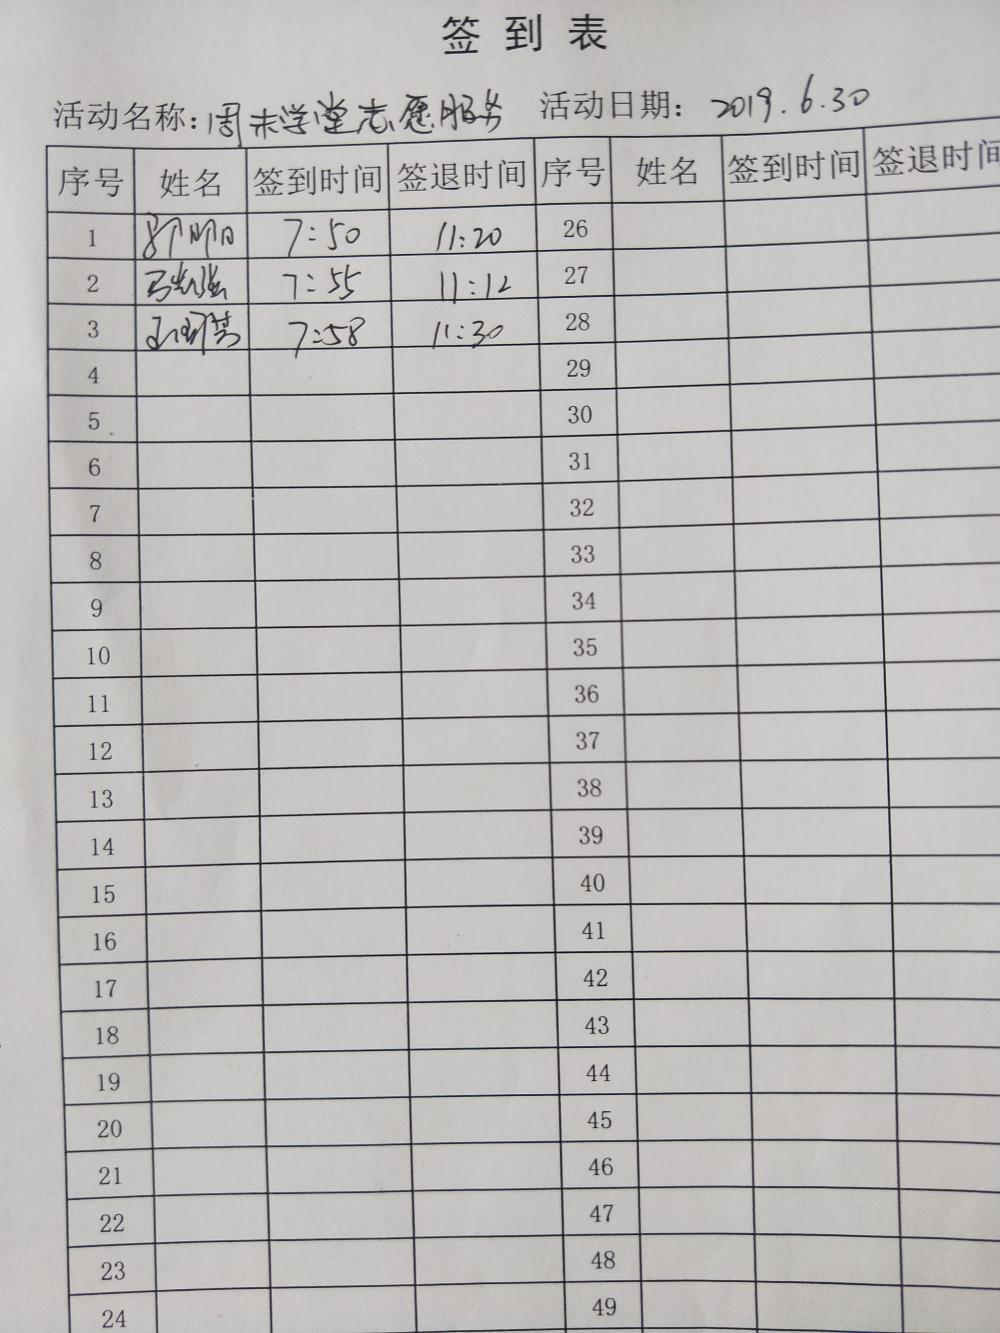 签到表
活动名称:周末学堂志愿服务 活动日期: 2019.6.30
序号 姓名 签到时间 签退时间 序号 姓名 签到时间 签退时间
1 7:50 11:20 26
2 7:55 11:12 27
3 7:58 11:30 28
4 29
5 30
6 31
7 32
8 33
9 34
10 35
11 36
12 37
13 38
14 39
15 40
16 41
17 42
18 43
19 44
20 45
21 46
22 47
23 48
24 49